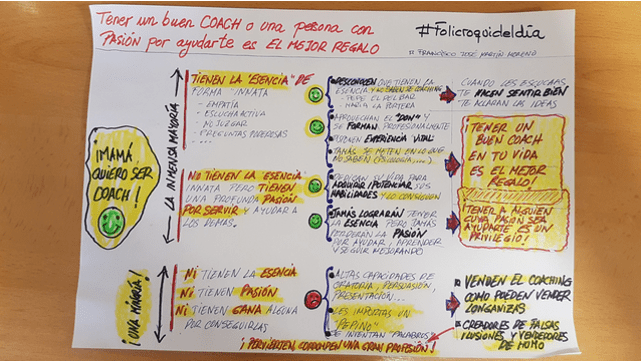 TENER UN BUEN COACH O UNA PERSONA CON
PASIÓN POR AYUDARTE ES EL MEJOR REGALO
#FOLICROQUIDELDÍA
FRANCISCO JOSÉ MARTÍN MORENO
¡MAMÁ
QUIERO SER
COACH!
LA INMENSA MAYORÍA
TIENEN LA "ESENCIA" DE
FORMA INNATA
- EMPATÍA
- ESCUCHA ACTIVA
- NO JUZGAR
- PREGUNTAS PODEROSAS
- ....
DESCONOCEN QUE TIENEN LA
ESENCIA Y NO SABEN DE COACHING
- PEPE EL DEL BAR
- MARÍA LA PORTERA
CUANDO LES ESCUCHAS
TE HACEN SENTIR BIEN
TE ACLARAN LAS IDEAS
APROVECHAN EL "DON" Y
SE FORMAN PROFESIONALMENTE
EXPERIENCIA VITAL
JAMÁS SE METEN EN LO QUE
NO SABEN (PSICOLOGÍA,...)
¡TENER UN
BUEN COACH
EN TU VIDA
ES EL MEJOR
REGALO!
NO TIENEN LA ESENCIA
INNATA PERO TIENEN
UNA PROFUNDA PASIÓN
POR SERVIR Y AYUDAR A
LOS DEMÁS.
DEDICAN SU VIDA PARA
ADQUIRIR/POTENCIAR SUS
HABILIDADES Y LO CONSIGUEN
JAMÁS LOGRARÁN TENER
LA ESENCIA PERO JAMÁS
PERDERÁN LA PASIÓN
POR AYUDAR, APRENDER
Y SEGUIR MEJORANDO
¡TENER A ALGUIEN
CUYA PASIÓN SEA
AYUDARTE ES UN
PRIVILEGIO!
¡UNA MINORÍA!
NI TIENEN LA ESENCIA
NI TIENEN PASIÓN
NI TIENEN GANA ALGUNA
POR CONSEGUIRLAS
ALTAS CAPACIDADES DE
ORATORIA, PERSUASIÓN,
PRESENTACIÓN...
LES IMPORTAS UN
"PEPINO"
SE INVENTAN "PALABROS"
VENDEN EL COACHING
COMO PUEDEN VENDER
LONGANIZAS
CREADORES DE FALSAS
ILUSIONES Y VENDEDORES
DE HUMO
¡PERVIERTEN, CORROMPEN UNA GRAN PROFESIÓN!